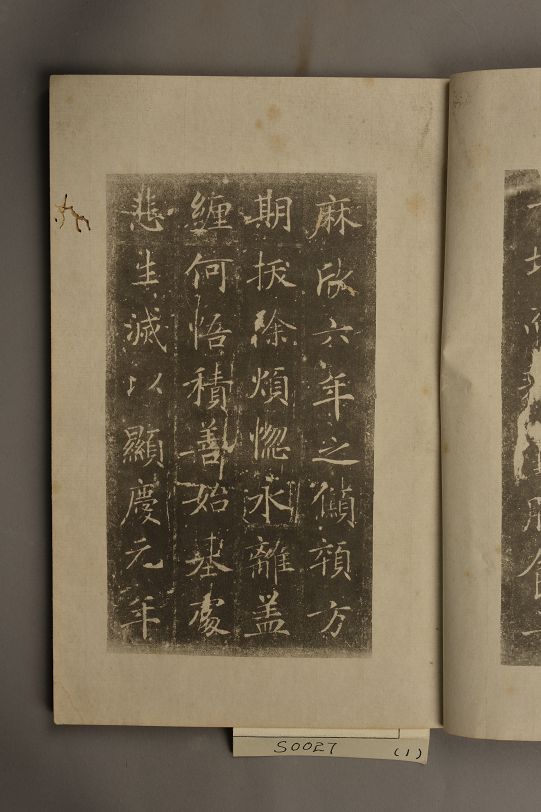 麻欣六年之方
期拔除煩惱永離盖
纏何悟積善始基處
悲生滅以顯慶元年
S0027 (1)